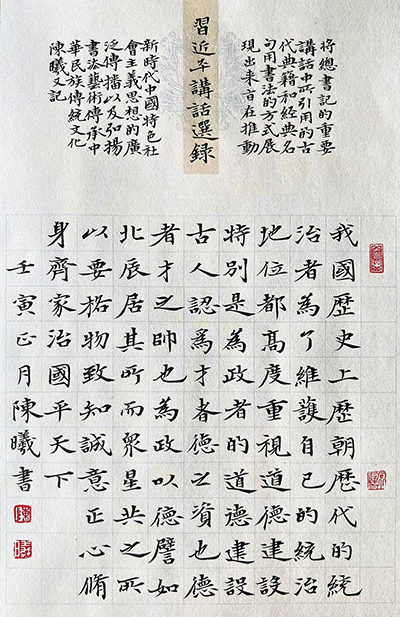 習近平講話選錄
將總書記的重要
講話中所引用的古
代典籍和經典名
句用書法的方式展
現出來旨在推動
新時代中國特色社
會主義思想的廣
泛傳播以及弘揚
書法藝術傳承中
華民族傳統文化
陳曦又記
我國歷史上歷朝歷代的統
治者為了維護自己的統治
地位都高度重視道德建設
特別是為政者的道德建設
古人認為才者德之資也德
者才之帥也為政以德譬如
北辰居其所而眾星共之所
以要格物致知誠意正心脩
身齊家治國平天下
壬寅正月陳曦書